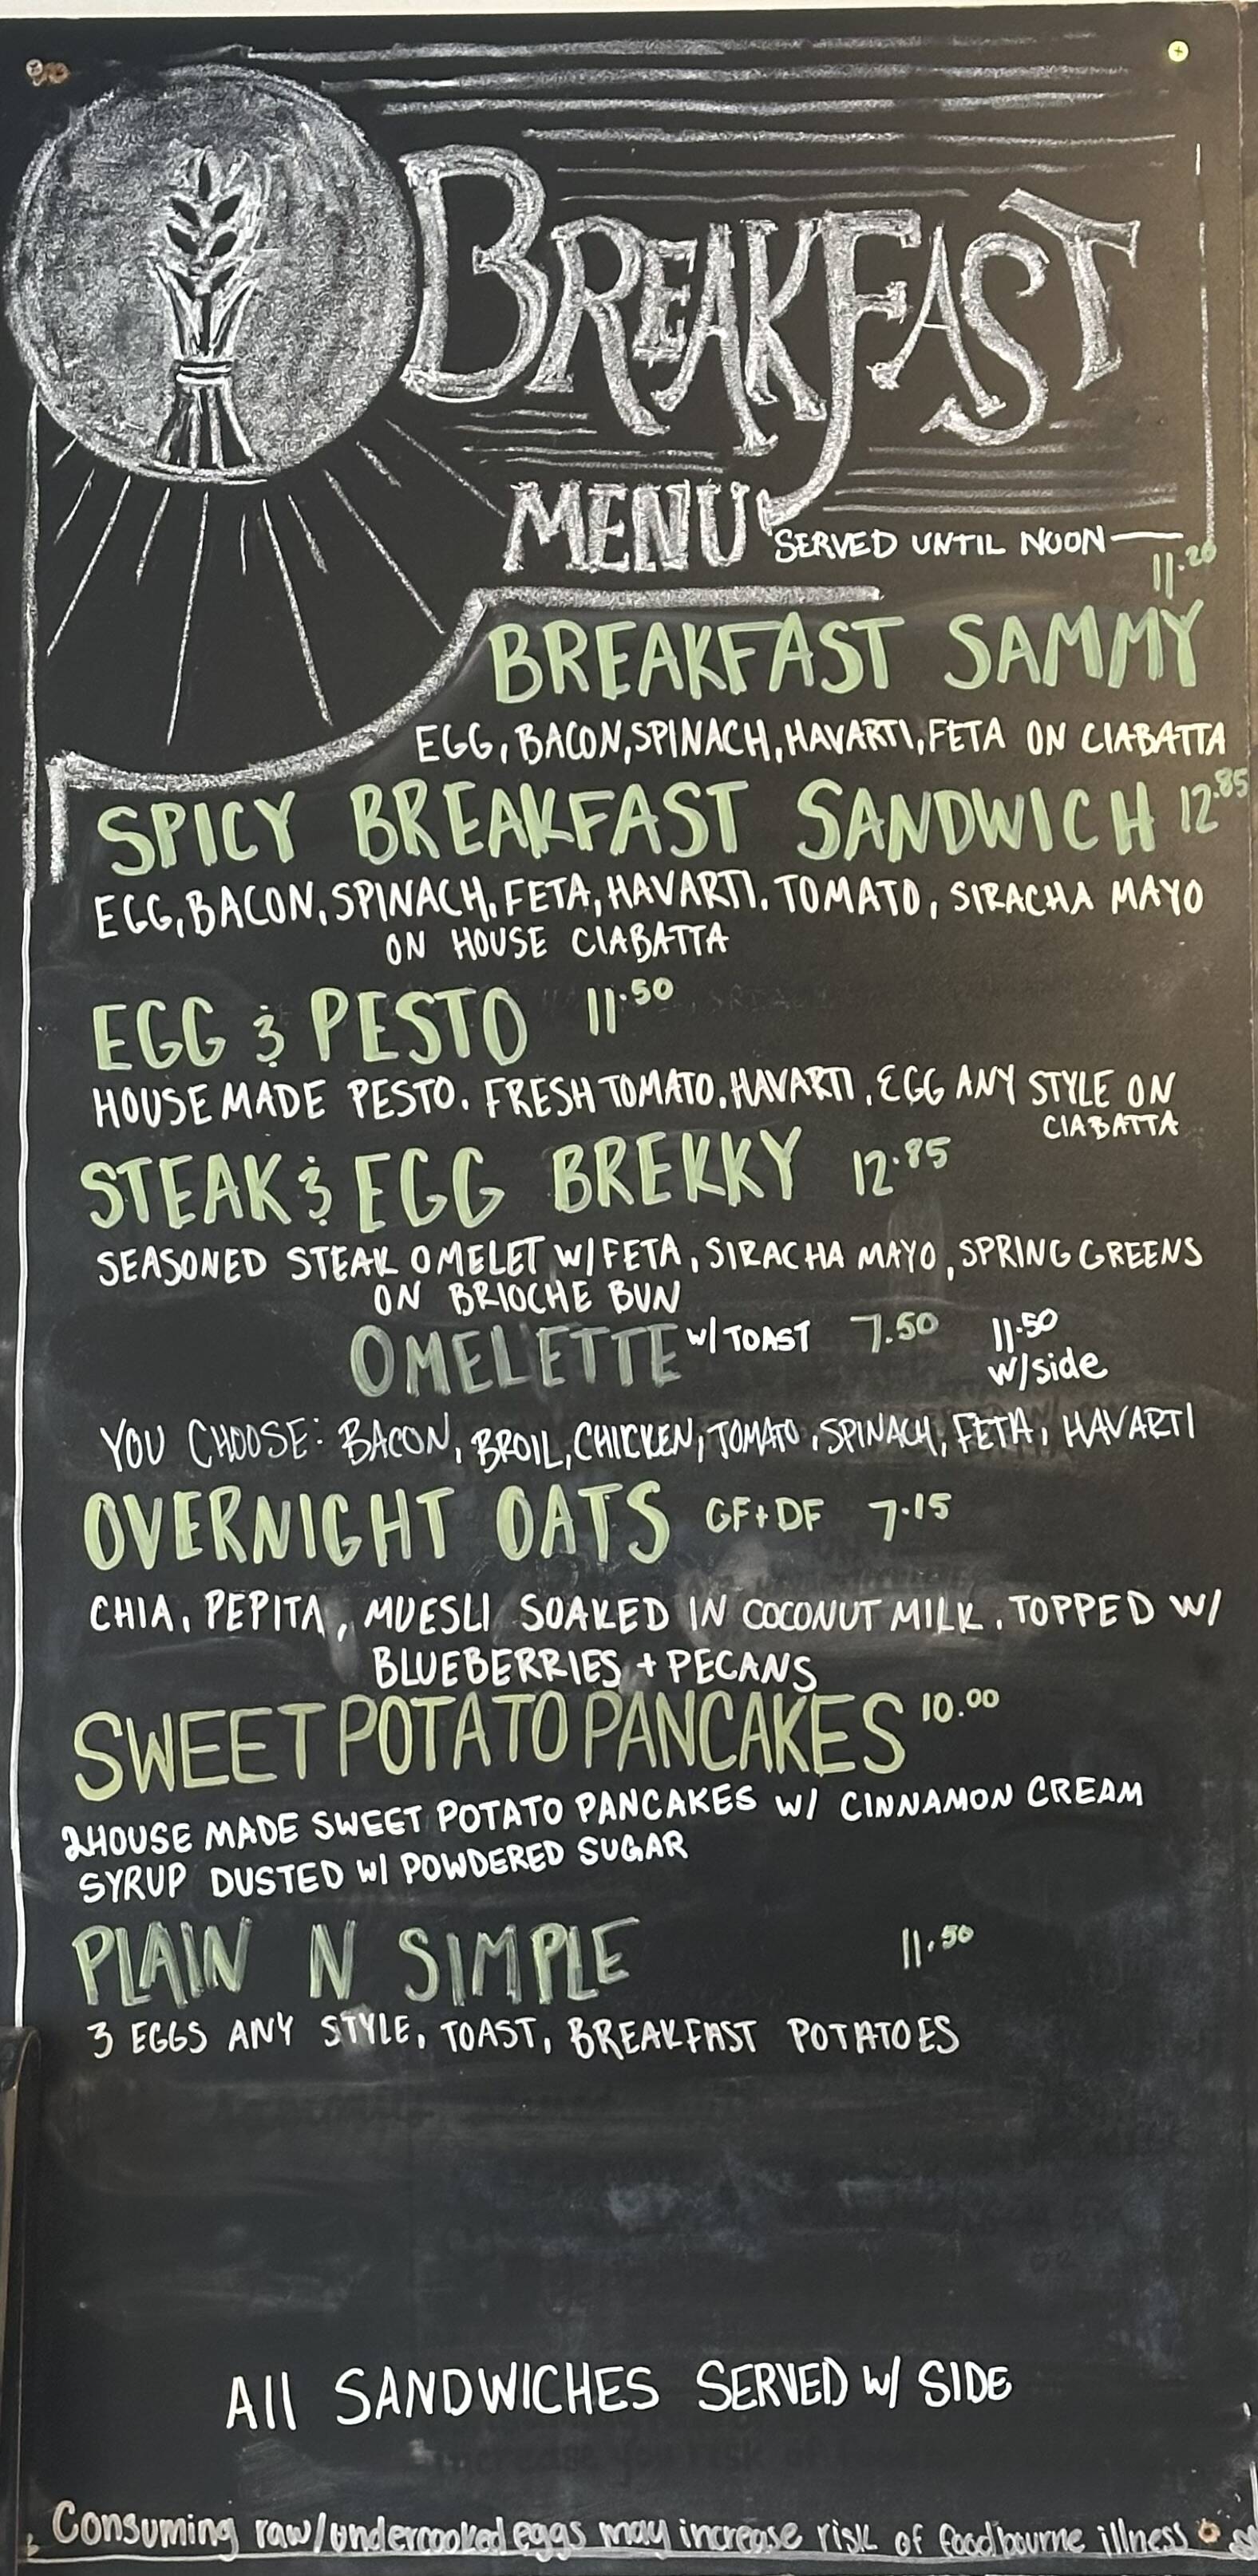 BREAKFAST
MENU SERVED UNTIL NOON
11.20
BREAKFAST SAMMY
EGG, BACON, SPINACH, HAVARTI, FETA ON CIABATTA
SPICY BREAKFAST SANDWICH 12.85
EGG, BACON, SPINACH, FETA, HAVARTI, TOMATO, SIRACHA MAYO
ON HOUSE CIABATTA
EGG & PESTO 11.50
HOUSE MADE PESTO, FRESH TOMATO, HAVARTI, EGG ANY STYLE ON
CIABATTA
STEAK & EGG BREKKY 12.85
SEASONED STEAK OMELET W/ FETA, SIRACHA MAYO, SPRING GREENS
ON BRIOCHE BUN
OMELETTE w/ TOAST 7.50 11.50
w/side
YOU CHOOSE: BACON, BROIL, CHICKEN, TOMATO, SPINACH, FETA, HAVARTI
OVERNIGHT OATS GF+DF 7.15
CHIA, PEPITA, MUESLI SOAKED IN COCONUT MILK, TOPPED W/
BLUEBERRIES + PECANS
SWEET POTATO PANCAKES 10.00
2 HOUSE MADE SWEET POTATO PANCAKES W/ CINNAMON CREAM
SYRUP DUSTED W/ POWDERED SUGAR
PLAIN N SIMPLE 11.50
3 EGGS ANY STYLE, TOAST, BREAKFAST POTATOES
All SANDWICHES SERVED w/ SIDE
Consuming raw/undercooked eggs may increase risk of foodbourne illness